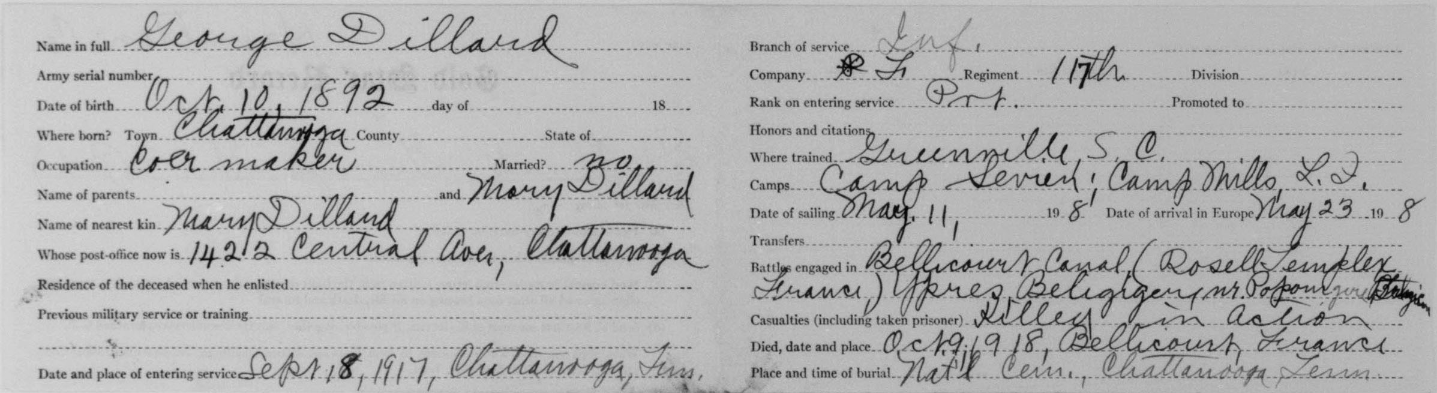 Name in full George Dillard
Army serial number
Date of birth Oct. 10, 1892 day of 18
Where born? Town Chattanooga County State of
Occupation Coer maker Married? no
Name of parents and Mary Dillard
Name of nearest kin Mary Dillard
Whose post-office now is 1422 Central Ave, Chattanooga
Residence of the deceased when he enlisted
Previous military service or training
Date and place of entering service Sept 18, 1917, Chattanooga, Tenn.
Branch of service Inf.
Company F Regiment 117th Division
Rank on entering service Prt. Promoted to
Honors and citations
Where trained Greenville, S. C.
Camps Camp Sevier, Camp Mills, L. I.
Date of sailing May. 11, 19 8 Date of arrival in Europe May 23 19 8
Transfers
Battles engaged in Bellicourt Canal, (Rosell Templex
France) Ypres nr.
Casualties (including taken prisoner) Killed in action
Died, date and place Oct 9, 1918, Bellicourt, France
Place and time of burial Nat'l Cem., Chattanooga Tenn.